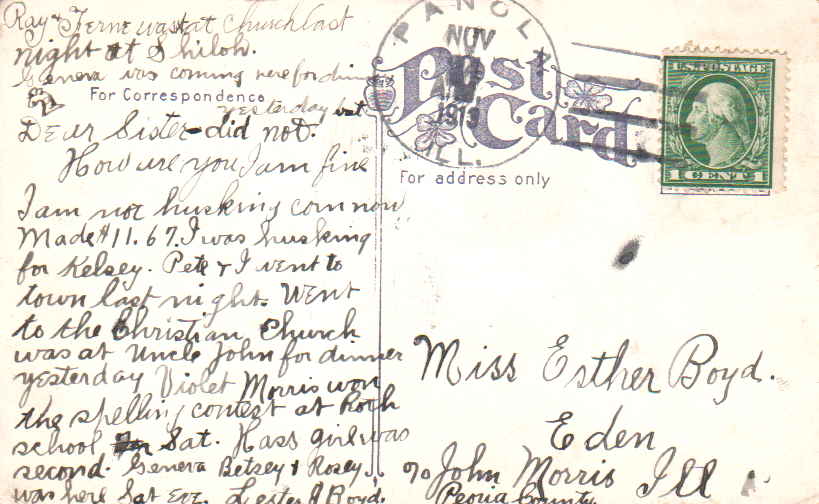 Ray & Ferne was at Church last
night at Shiloh.
Geneva was coming here for dinner
yesterday but
For Correspondence
Dear Sister - did not.
How are you I am fine
I am not husking corn now
Made $11.67. I was husking
for Kelsey. Pete & I went to
town last night. Went
to the Christian Church
was at Uncle John for dinner
yesterday Violet Morris won
the spelling contest at Roth
school Sat. Hass girl was
second. Geneva Betsey & Rosey
was here Sat Eve. Lester A Boyd.
PANOLA
NOV
A.M.
1913
ILL.
Post
Card
For address only
U.S. POSTAGE
1 CENT 1
Miss Esther Boyd.
Eden
c/o John Morris Ill
Peoria County